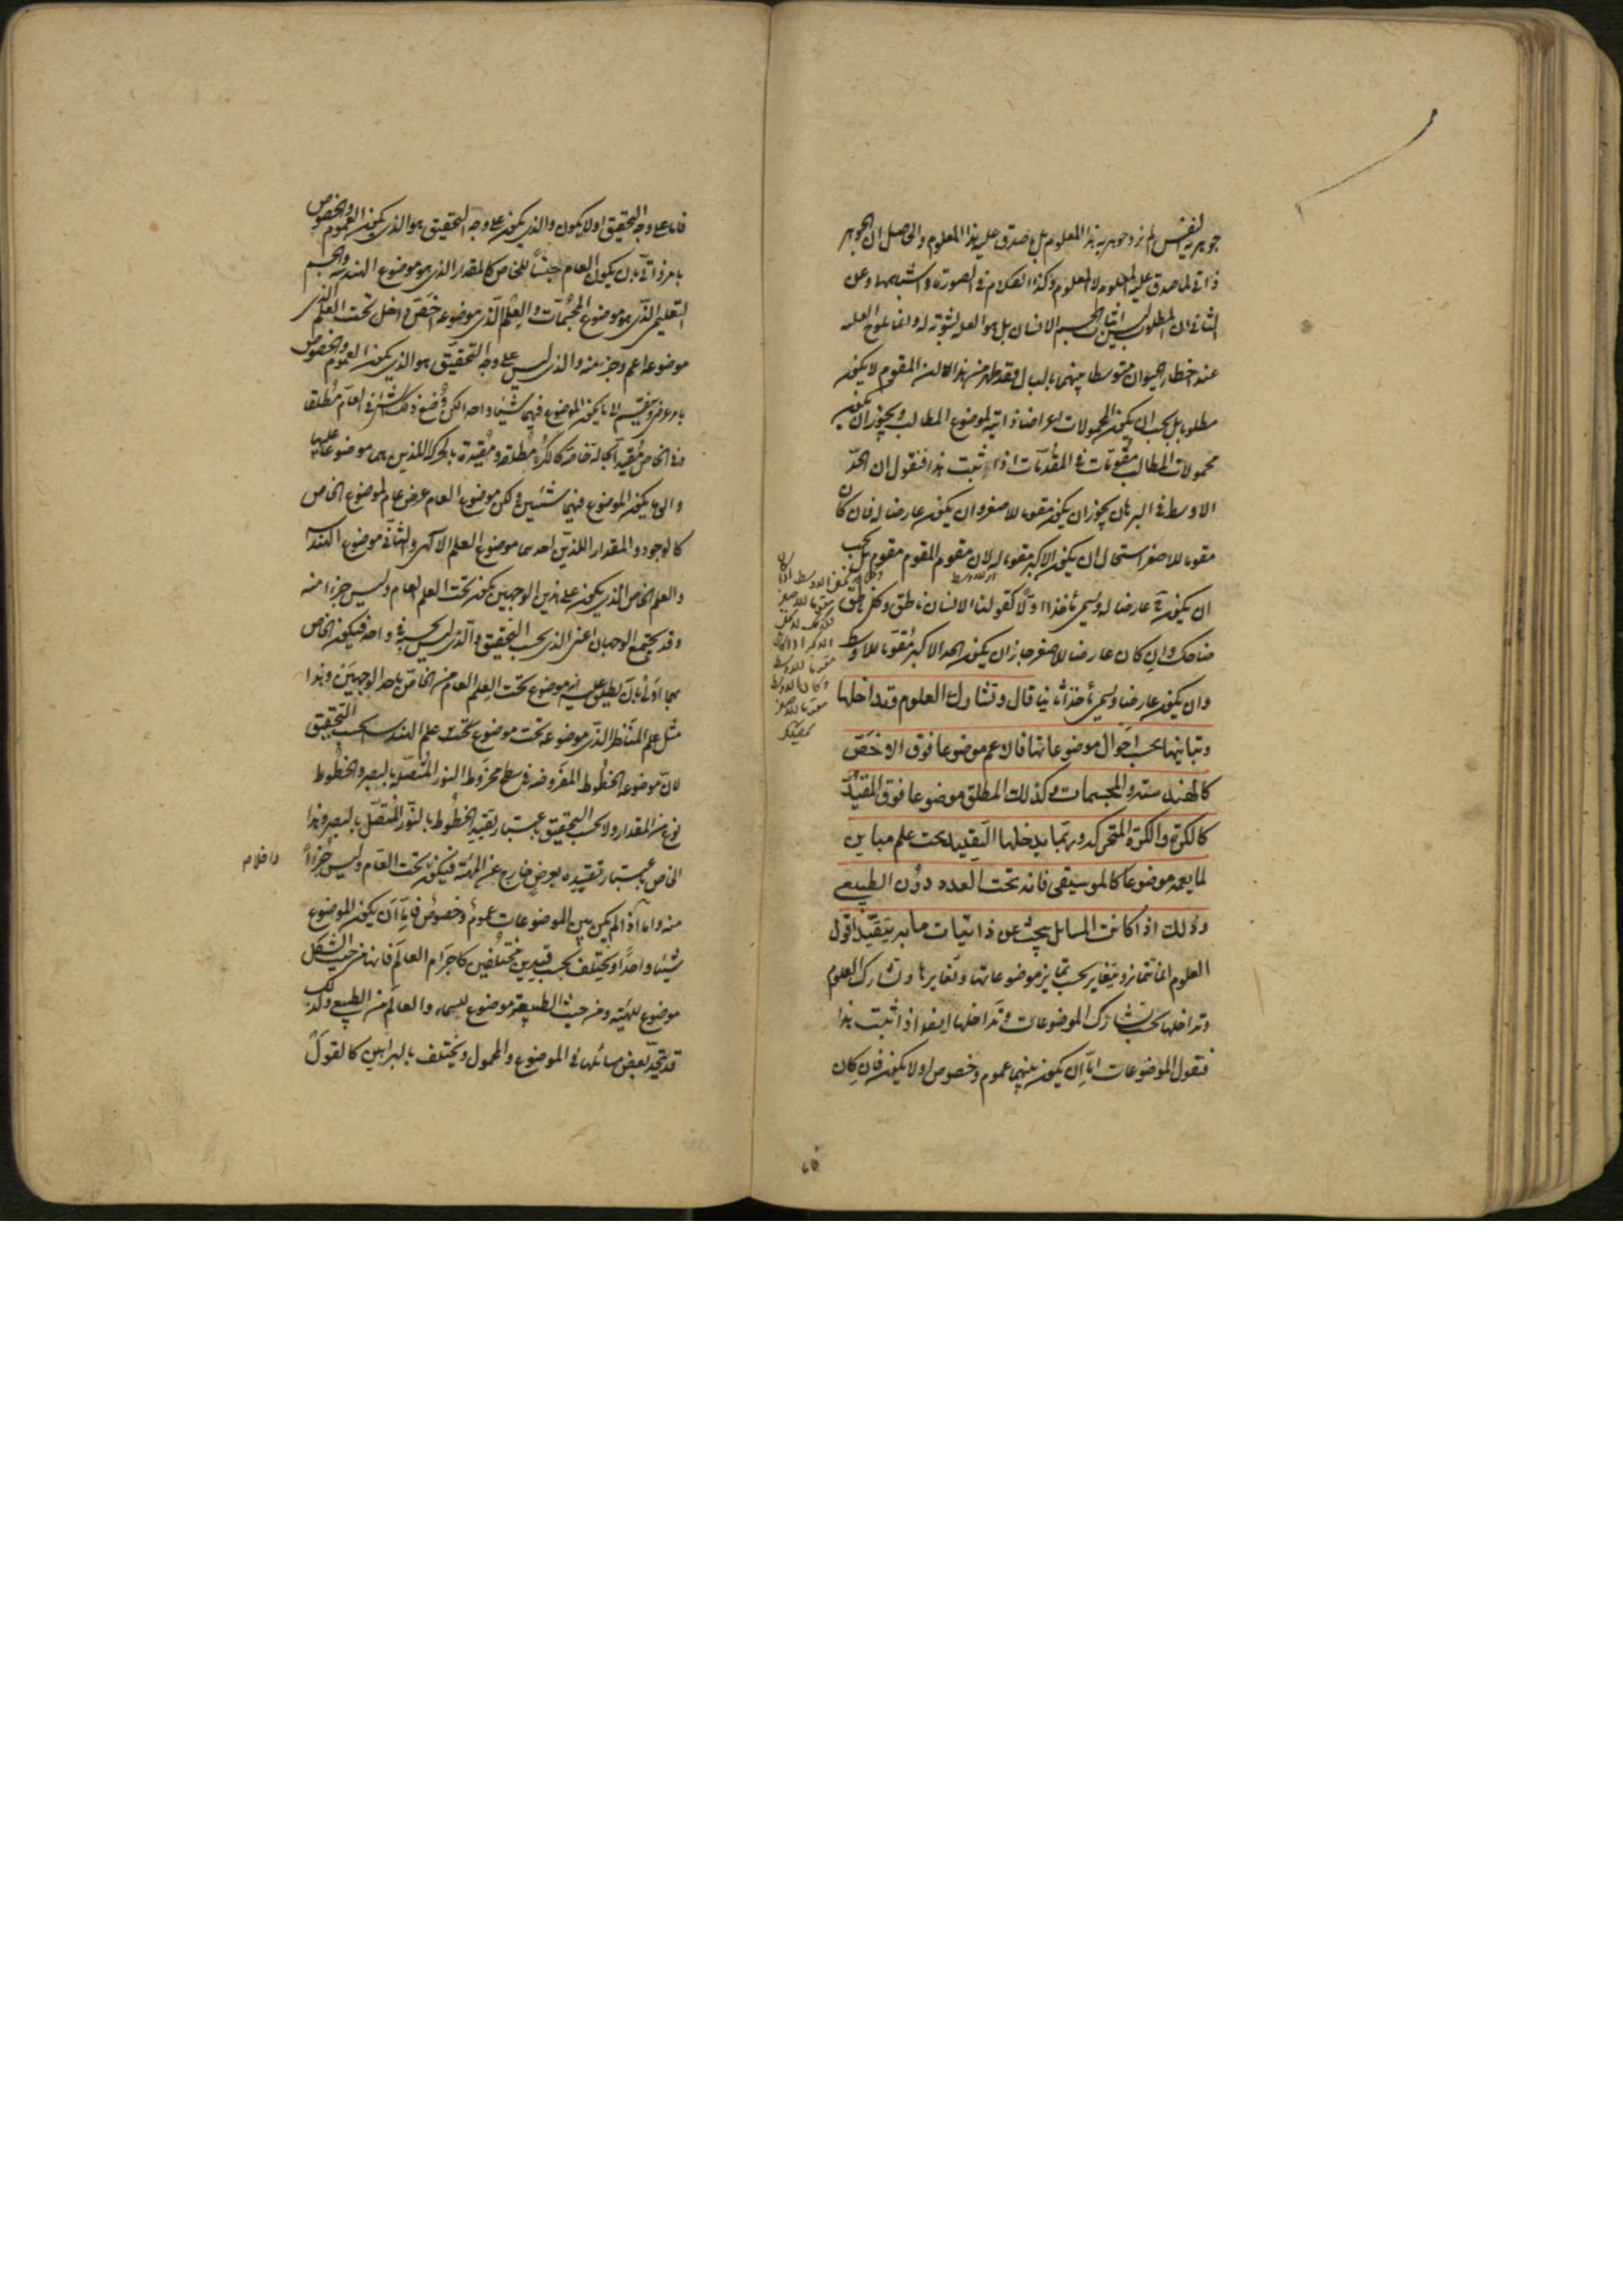 جوهرية النفس لم نرد جوهرية هذا المعلوم بل ما صدق عليه هذا المعلوم والحاصل ان الجوهر
ذاتي لما صدق عليه المعلوم لا للمعلوم وكذا الكلام في الصورة واشباهها وعن
الثاني ان المطلوب ليس اثبات الجسم للانسان بل هو العلة لثبوته له وانما تلوح العلة
عند اخطار الحيوان متوسطا بينهما بالبال فقد ظهر من هذا ان المقوم لا يكون
مطلوبا بل يجب ان يكون المحمولات اعراضا ذاتية لموضوع المطالب ويجوز ان يكون
محمولات المطالب مقومات في المقدمات اذا ثبت هذا فنقول ان الحدّ
الاوسط في البرهان يجوز ان يكون مقوما للاصغر وان يكون عارضا له فان كان
مقوما للاصغر استحال ان يكون الاكبر مقوما له لان مقوم المقوم مقوم بل يجب
ان يكون عارضا له ويسمى مأخذا اوّلا كقولنا الانسان ناطق وكل ناطق
ضاحك وان كان عارضا للاصغر جاز ان يكون الحد الاكبر مقوما للاوسط
وان يكون عارضا ويسمى مأخذا ثانيا قال وتشارك العلوم وتداخلها
وتباينها بحسب احوال موضوعاتها فالاعم موضوعا فوق الاخص
كالهندسة والمجسمات وكذلك المطلق موضوعا فوق المقيد
كالكرة والكرة المتحركة وربما يدخلها التقييد تحت علم مباين
لما يعمه موضوعا كالموسيقى فانه تحت العدد دون الطبيعي
وذلك اذا كانت المسائل يبحث عن ذاتيات ما به يتقيد اقول
العلوم انما تتمايز وتتغاير بحسب تمايز موضوعاتها وتغايرها وتشارك العلوم
وتداخلها بحسب تشارك الموضوعات وتداخلها ايضا اذا ثبت هذا
فنقول الموضوعات امّا ان يكون بينهما عموم وخصوص او لا يكون فان كان
فاما على وجه التحقيق او لا يكون والذي يكون على وجه التحقيق هو الذي يكون العموم والخصوص
بامر ذاتي بان يكون العام جنسا للخاص كالمقدار الذي هو موضوع الهندسة والجسم
التعليمي الذي هو موضوع المجسمات والعلم الذي موضوعه اخص داخل تحت العلم الذي
موضوعه اعم وجزء منه والذي ليس على وجه التحقيق هو الذي يكون العموم والخصوص
بامر عرضي وينقسم الى ما يكون الموضوع فيهما شيئا واحدا لكن وضع ذلك الشيء في العام مطلقا
وفي الخاص مقيدا بحالة خاصة كالكرة مطلقة ومقيدة بالحركة اللذين هما موضوعا علمين
والى ما يكون الموضوع فيهما شيئين ولكن موضوع العام عرض عام لموضوع الخاص
كالوجود والمقدار اللذين احدهما موضوع العلم الالهي والثاني موضوع الهندسة
والعلم الخاص الذي يكون على هذين الوجهين يكون تحت العلم العام وليس جزءا منه
وقد يجتمع الوجهان اعني الذي بحسب التحقيق والذي ليس بحسبه في واحد فيكون الخاص
بهما اولى بان يطلق عليه انه موضوع تحت العلم العام من الخاص باحد الوجهين وهذا
مثل علم المناظر الذي موضوعه تحت موضوع تحت علم الهندسة بحسب التحقيق
لان موضوعه الخطوط المفروضة في سطح مخروط النور المتصلة بالبصر والخطوط
نوع من المقدار ولا بحسب التحقيق باعتبار تقييد الخطوط بالنور المتصل بالبصر وهذا
الخاص باعتبار تقييده بعرض خارج عن الهيئة فيكون تحت العام وليس جزءا
منه واما اذا لم يكن بين الموضوعات عموم وخصوص فاما ان يكون الموضوع
شيئا واحدا ويختلف بحسب قيدين مختلفين كاجرام العالم فانها من حيث الشكل
موضوع للهيئة ومن حيث الطبيعة موضوع للسماء والعالم من الطبيعي ولذلك
قد يتحد بعض مسائلها في الموضوع والمحمول ويختلف بالبراهين كالقول